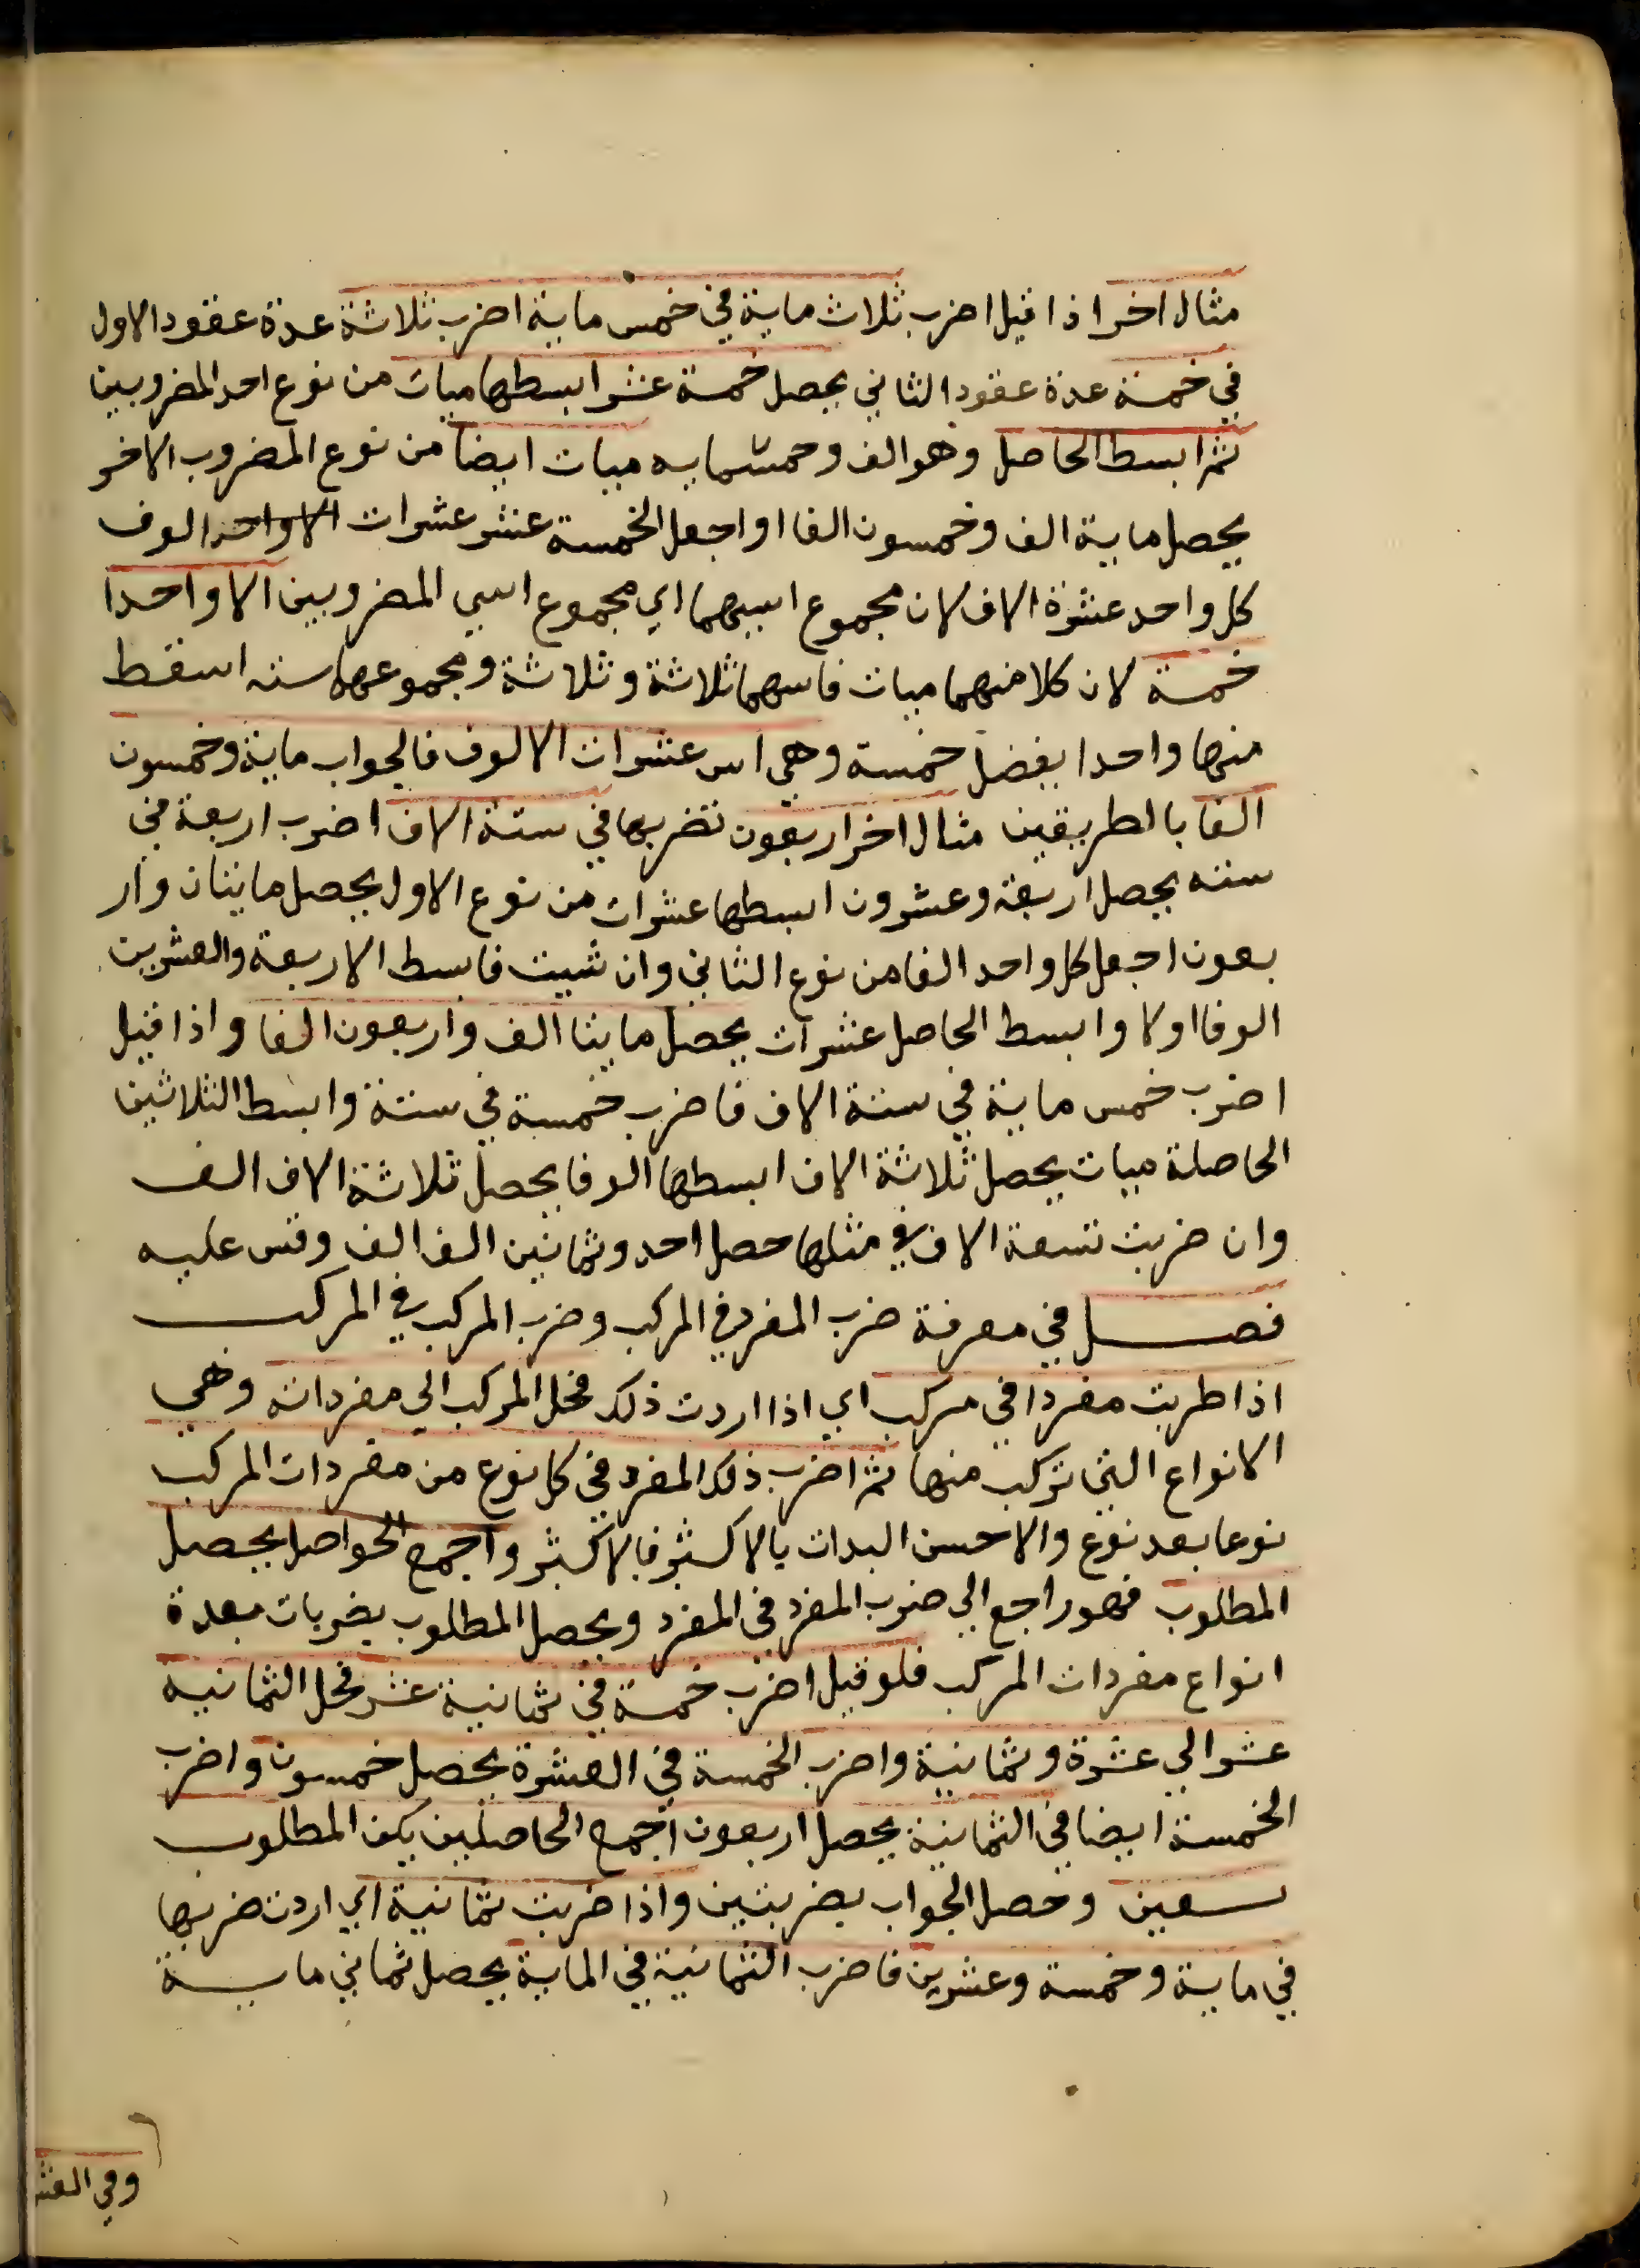 مثال اخر اذا قيل اضرب ثلاث ماية في خمس ماية اضرب ثلاثة عدة عقود الاول
في خمسة عدة عقود الثاني يحصل خمسة عشر ابسطها ميات من نوع احد المضروبين
ثم ابسط الحاصل وهو الف وخمسمايه ميات ايضا من نوع المضروب الاخر
يحصل ماية الف وخمسون الفا او اجعل الخمسة عشر عشرات الاواحد الوف
كل واحد عشرة الاف لان مجموع اسيهما اي مجموع اسي المضروبين الا واحدا
خمسة لان كلا منهما ميات فاسهما ثلاثة وثلاثة ومجموعهما سته اسقط
منها واحدا يفضل خمسة وهي اس عشرات الالوف فالجواب ماية وخمسون
الفا بالطريقين مثال اخر اربعون تضربها في ستة الاف اضرب اربعة في
سته يحصل اربعة وعشرون ابسطها عشرات من نوع الاول يحصل مايتان وار
بعون اجعل كل واحد الفا من نوع الثاني وان شيت فابسط الاربعة والعشرين
الوفا اولا وابسط الحاصل عشرات يحصل مايتا الف واربعون الفا واذا قيل
اضرب خمس ماية في ستة الاف فاضرب خمسة في ستة وابسط الثلاثين
الحاصلة ميات يحصل ثلاثة الاف ابسطها الوفا يحصل ثلاثة الاف الف
وان ضربت تسعة الاف في مثلها حصل احد وثمانين الف الف وقس عليه
فصل في معرفة ضرب المفرد في المركب وضرب المركب في المركب
اذا طربت مفردا في مركب اي اذا اردت ذلك فحل المركب الي مفرداته وهي
الانواع التي تركب منها ثم اضرب ذلك المفرد في كل نوع من مفردات المركب
نوعا بعد نوع والاحسن البدات بالاكثر فالاكثر واجمع الحواصل يحصل
المطلوب فهو راجع الي ضرب المفرد في المفرد ويحصل المطلوب بضربات بعدة
انواع مفردات المركب فلو قيل اضرب خمسة في ثمانية عشر فحل الثمانية
عشر الي عشرة وثمانية واضرب الخمسة في العشرة يحصل خمسون واضرب
الخمسة ايضا في الثمانية يحصل اربعون اجمع الحاصلين يكن المطلوب
تسعين وحصل الجواب بضربتين واذا ضربت ثمانية اي اردت ضربها
في ماية وخمسة وعشرين فاضرب الثمانية في الماية يحصل ثماني ماية
وفي العشر